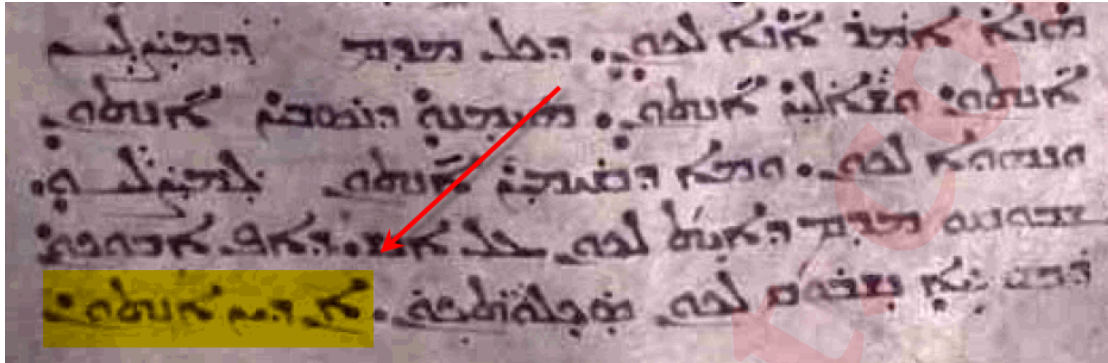 ܗܢܐ ܐܡܪ ܐܢܐ ܠܟܘܢ. ܕܟܠ ܡܕܡ ܕܡܨܠܝܢ
ܐܢܬܘܢ ܘܫܐܠܝܢ ܐܢܬܘܢ. ܗܝܡܢܘ ܕܢܣܒܝܢ ܐܢܬܘܢ
ܘܗܘܐ ܠܟܘܢ. ܘܡܐ ܕܩܝܡܝܢ ܐܢܬܘܢ ܠܡܨܠܝܘ.
ܫܒܘܩܘ ܡܕܡ ܕܐܝܬ ܠܟܘܢ ܥܠ ܐܢܫ. ܕܐܦ ܐܒܘܟܘܢ
ܕܒܫܡܝܐ ܢܫܒܘܩ ܠܟܘܢ ܣܟܠܘܬܟܘܢ. ܐܢ ܕܝܢ ܐܢܬܘܢ